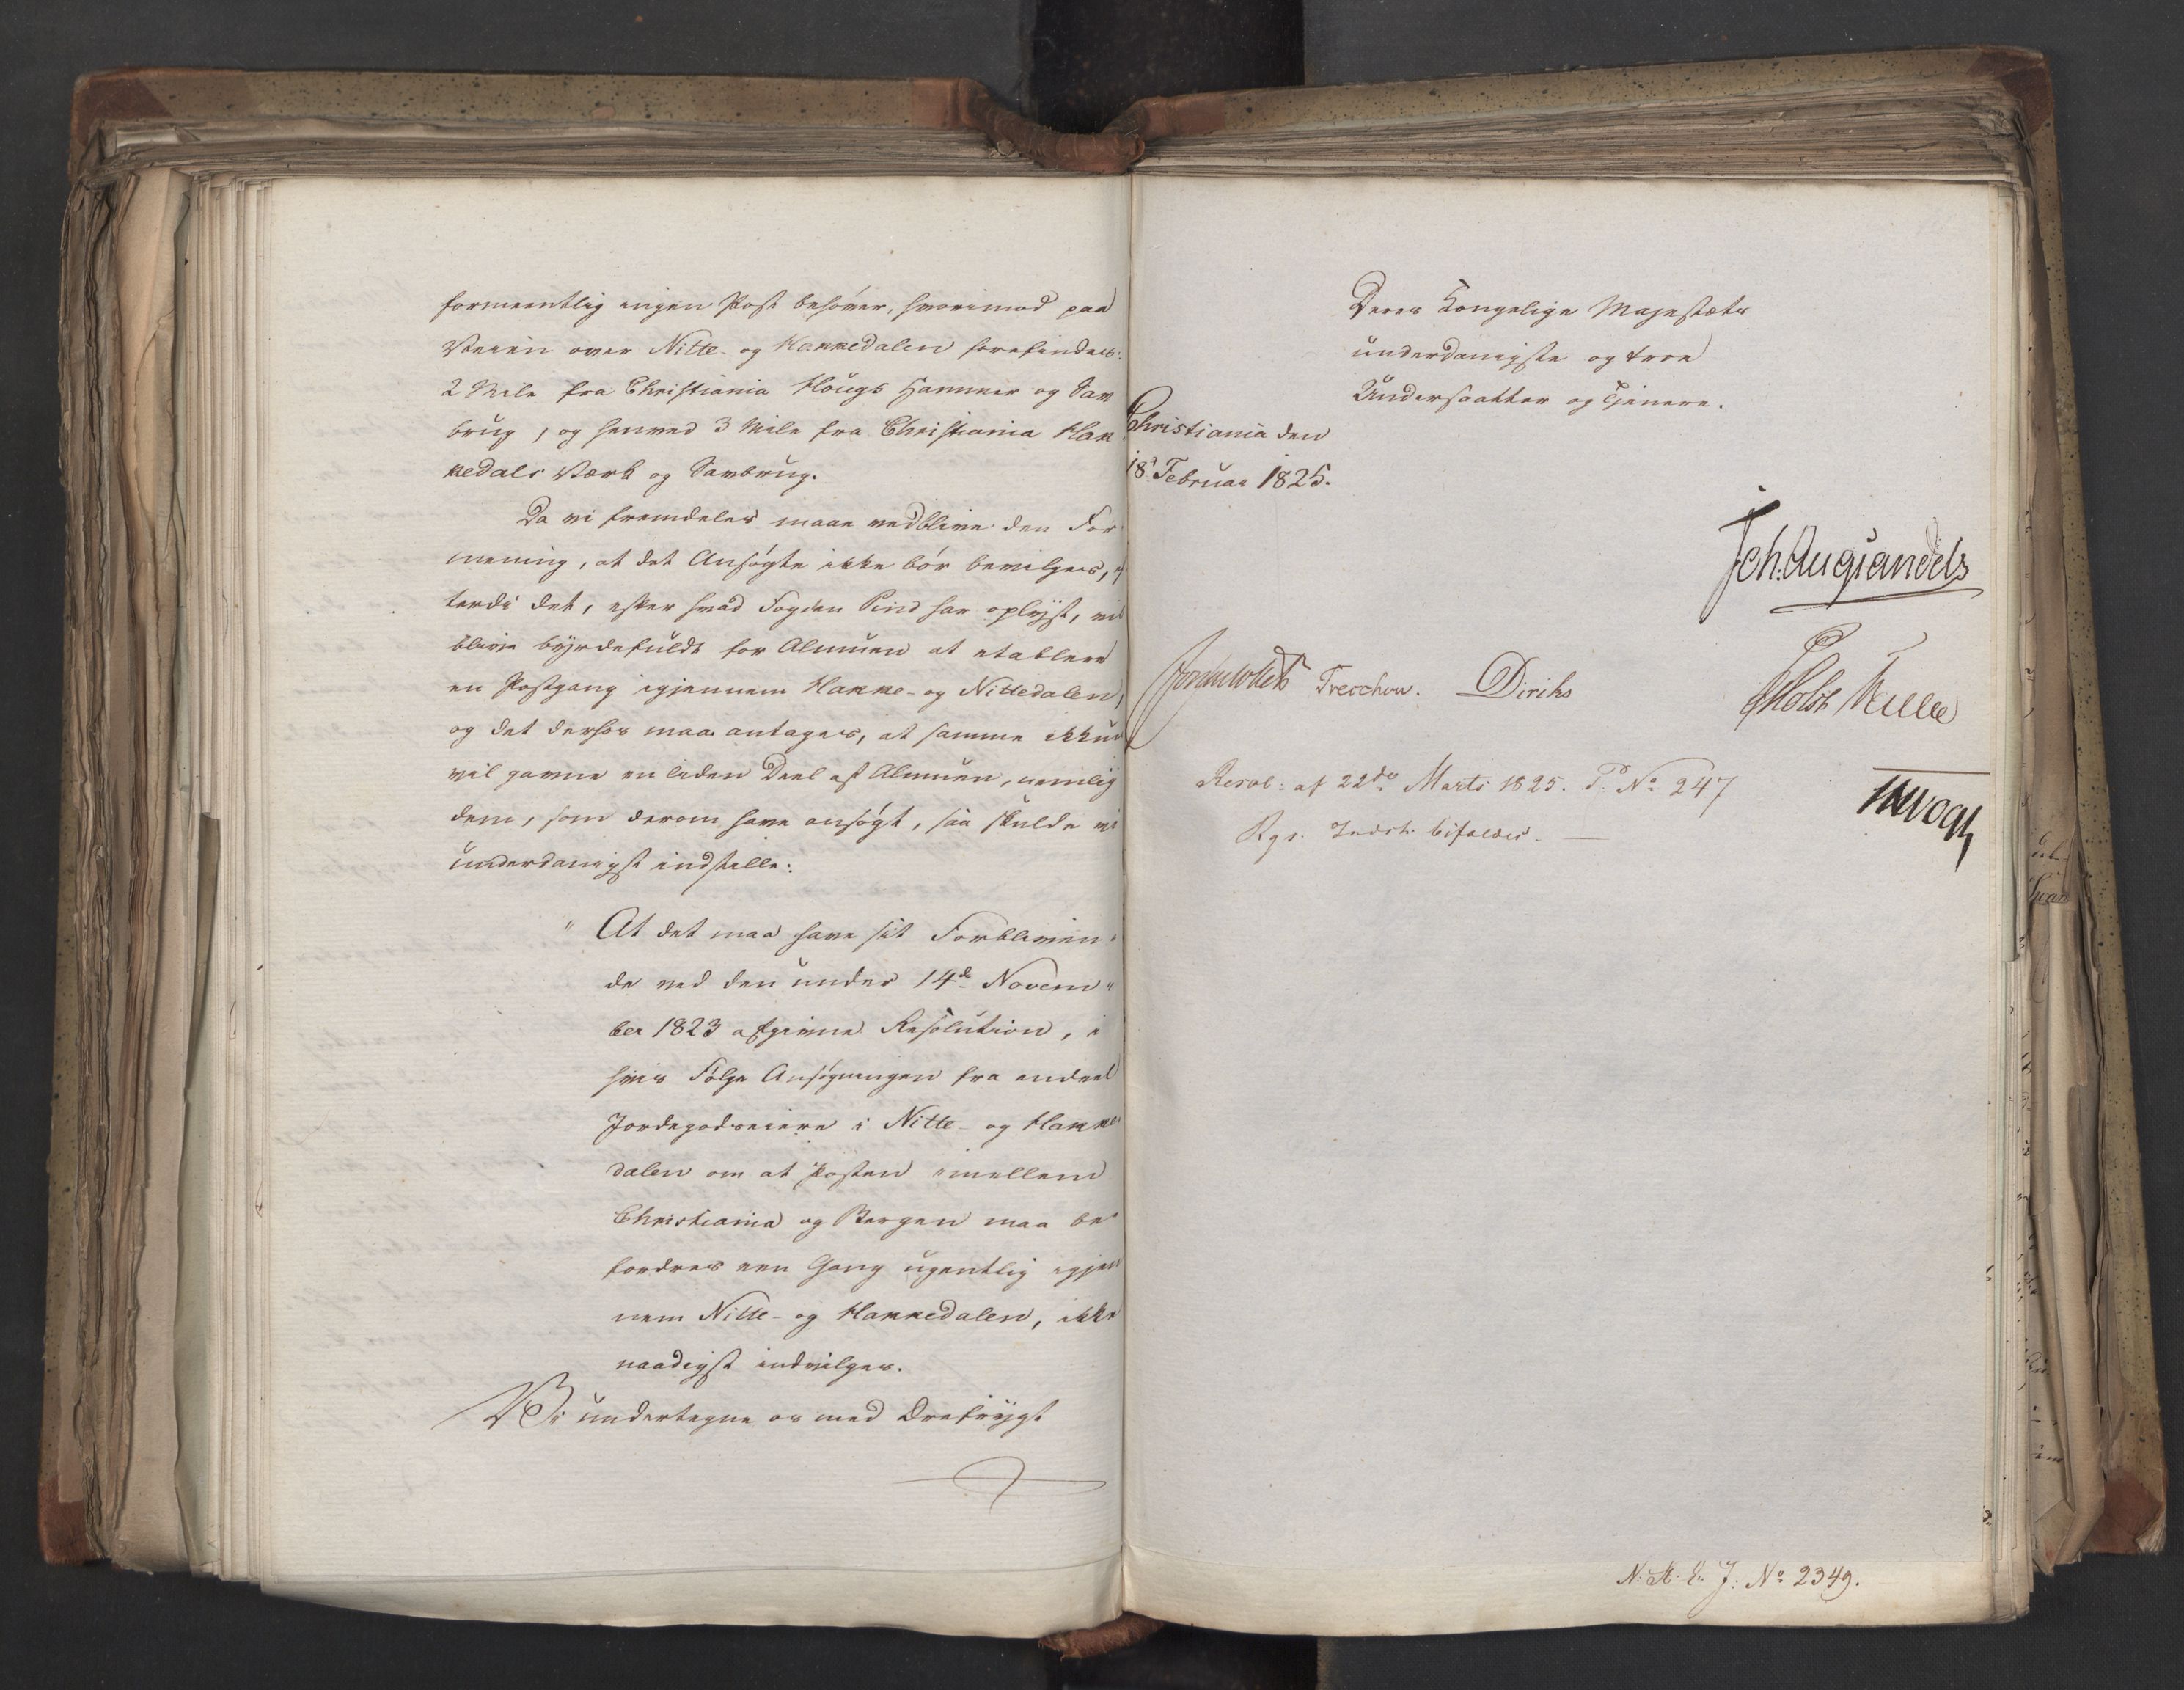 formeentlig ingen Post behöver, hvorimod paa
Veien over Nitte- og Hakkedalen forefindes:
2 Mile fra Christiania Hougs Hammer og Sav
brug, og henved 3 Mile fra Christiania Hak
kedals Værk og Savbrug.
Da vi fremdeles maae vedblive den For
mening, at det Ansögte ikke bör bevilges,
fordi det, efter hvad Fogden Pind har oplyst, vil
blive byrdefuldt for Almuen at etablere
en Postgang igjennem Hakke- og Nittedalen,
og det derhos maa antages, at samme ikkun
vil gavne en liden Deel af Almuen, nemlig
dem, som derom have ansögt, saa skulde vi
underdanigst indstille:
" At det maa have sit Forbliven-
de ved den under 14de Novem-
ber 1823 afgivne Resolution, i
hvis Fölge Ansögningen fra endeel
Jordegodseiere i Nitte- og Hakke
dalen om at Posten imellem
Christiania og Bergen maa be
fordres een Gang ugentlig igjen
nem Nitte- og Hakkedalen, ikke
naadigst indvilges.
Vi undertegne os med Ærefrygt
Deres Kongelige Majestæts
underdanigste og troe
Undersaatter og Tjenere.
Christiania den
18 Februar 1825.
Joh. Aug Sandels
Treschow. Diriks
Holst
Resol: af 22de Marts 1825. P. No 247
Rgs. Indst. bifaldes. —
Vogt
N. R. E. J: No 2349.